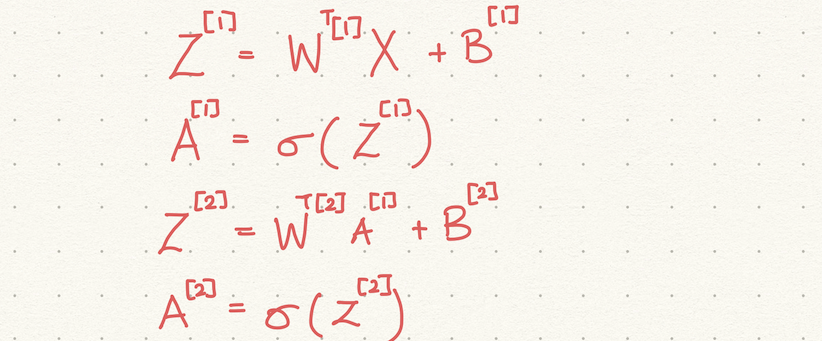 Z^[1] = W^T[1] X + B^[1]
A^[1] = σ(Z^[1])
Z^[2] = W^T[2] A^[1] + B^[2]
A^[2] = σ(Z^[2])